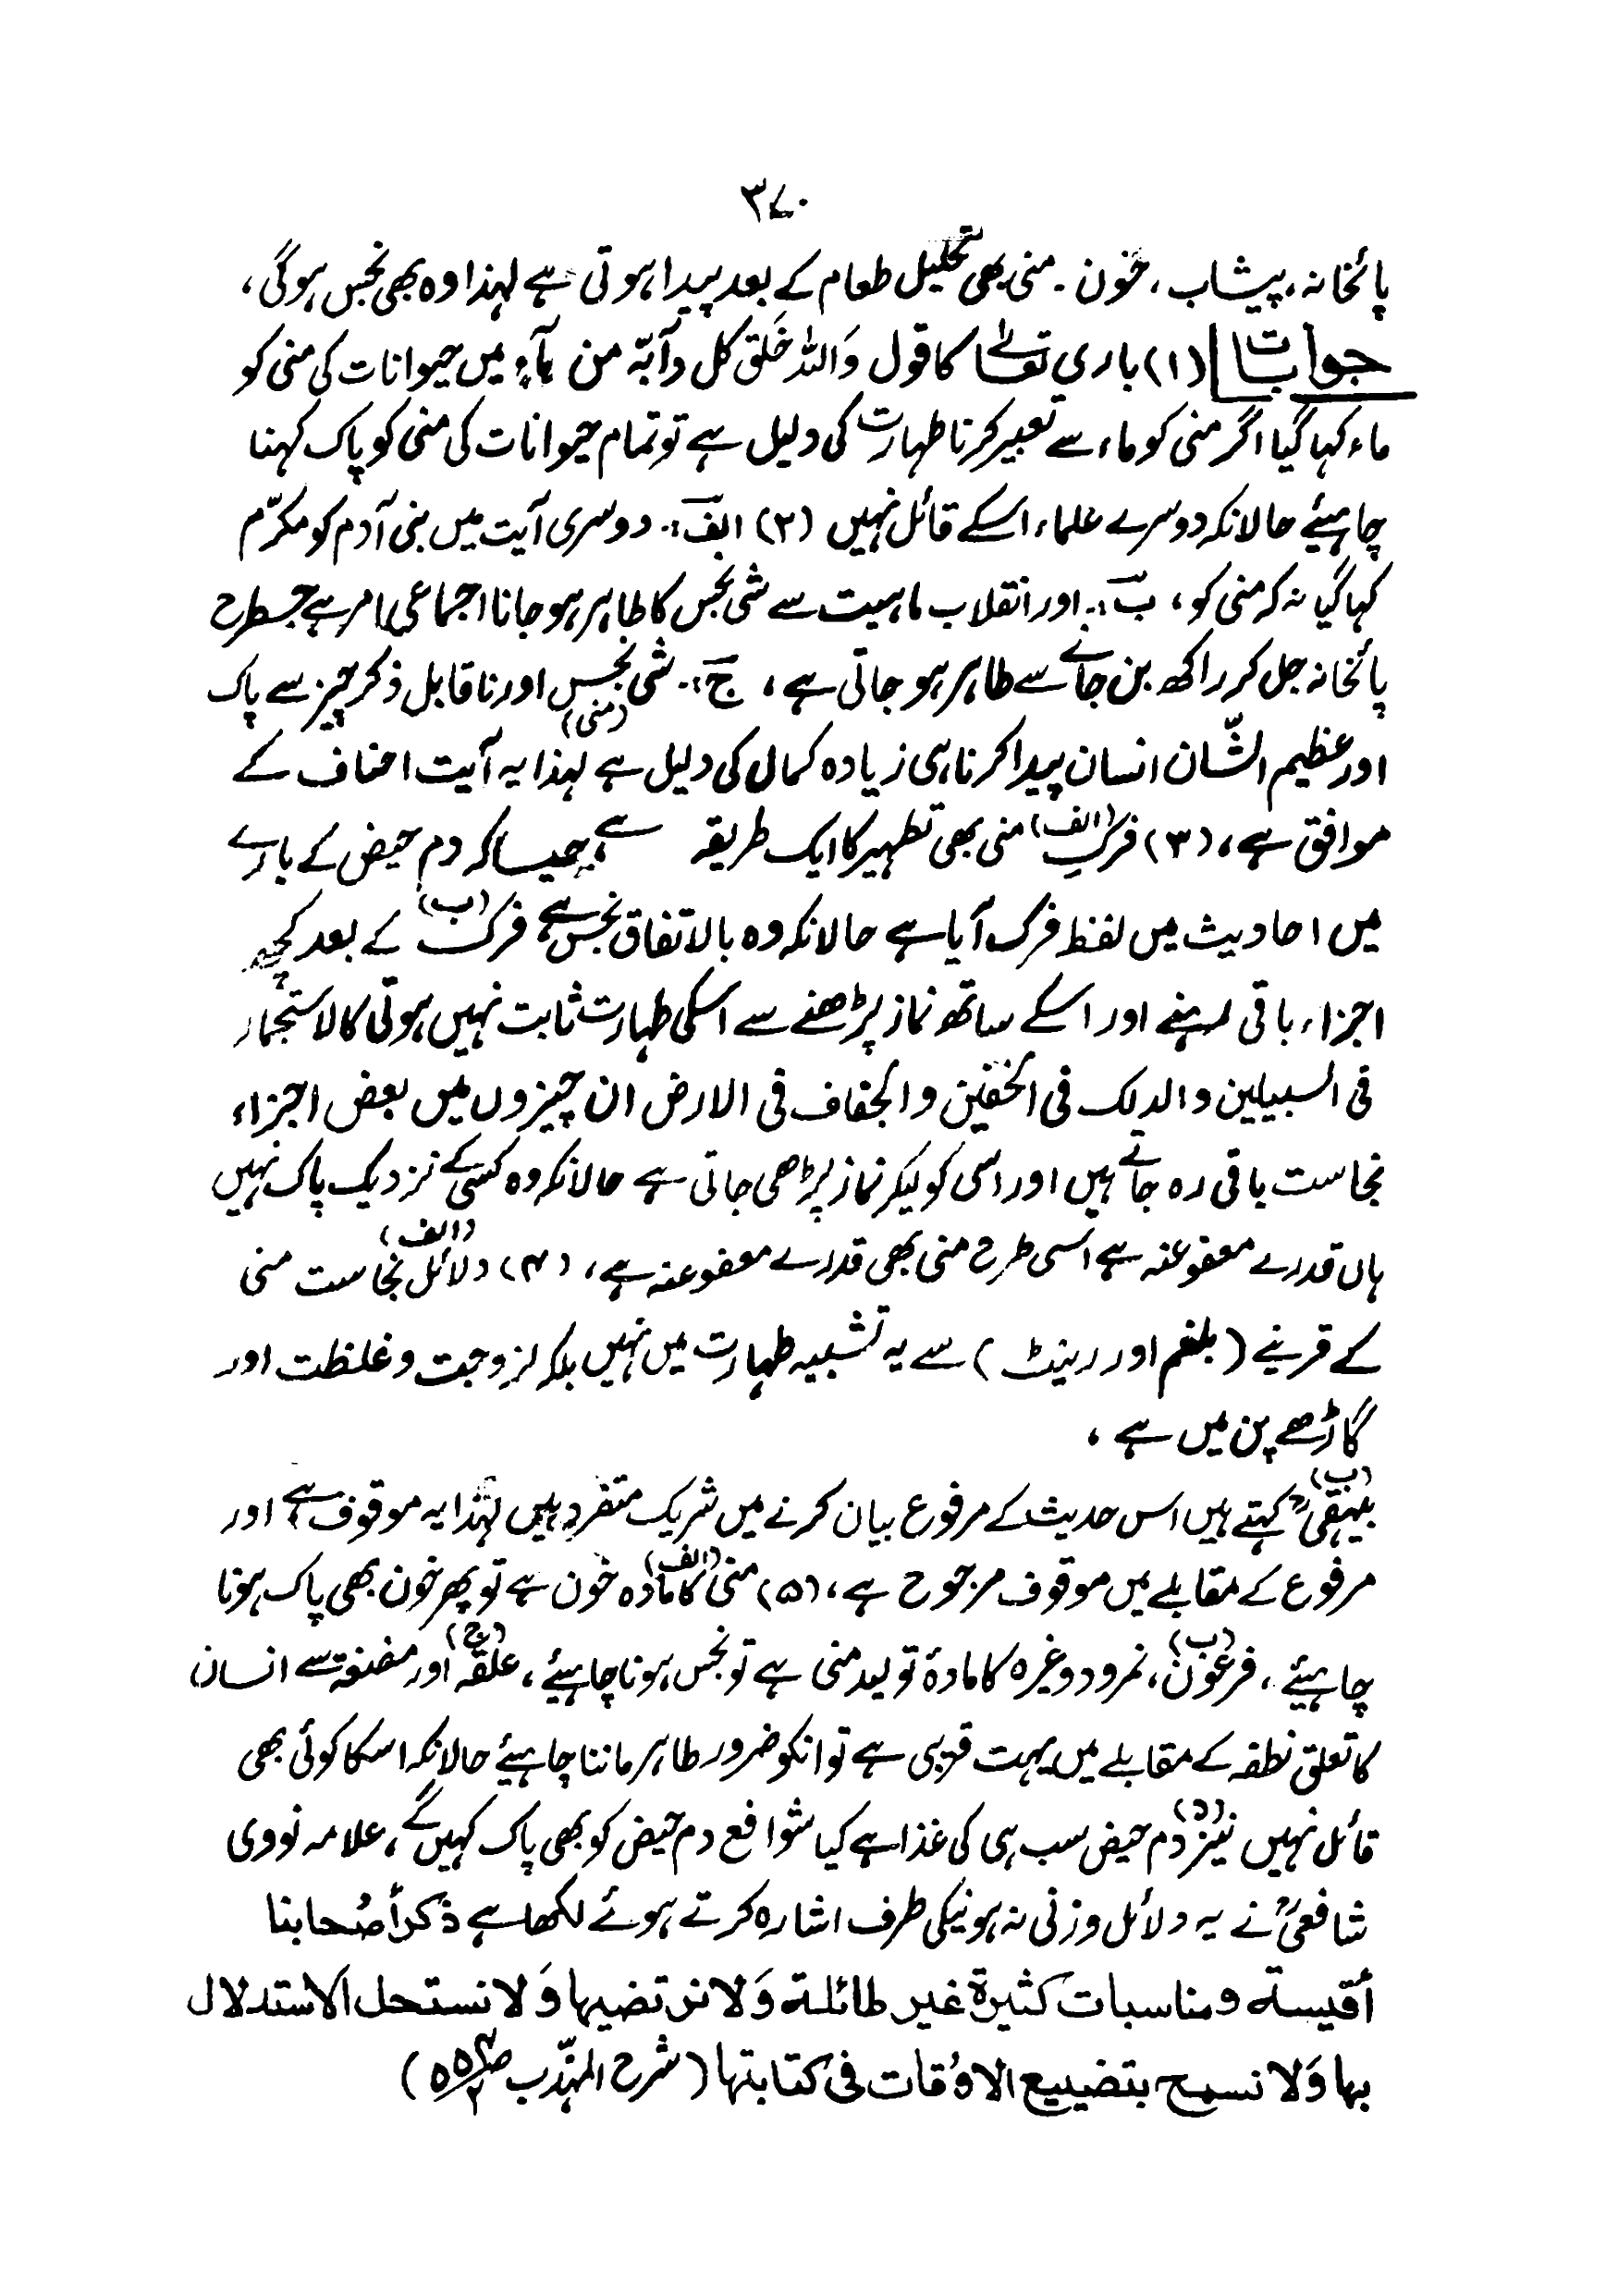 ۳۷۰
پائخانہ، پیشاب، خون۔ منی بھی تحلیل طعام کے بعد پیدا ہوتی ہے لہذا وہ بھی نجس ہوگی،
جوابات (۱) باری تعالےٰ کا قول وَاللہ خَلَق کل دآبّہ من مآءٍ میں حیوانات کی منی کو
ماء کہا گیا اگر منی کو ماء سے تعبیر کرنا طہارت کی دلیل ہے تو تمام حیوانات کی منی کو پاک کہنا
چاہیئے حالانکہ دوسرے علماء اسکے قائل نہیں (۲) الف :۔ دوسری آیت میں بنی آدم کو مکرّم
کہا گیا نہ کہ منی کو، ب :۔ اور انقلاب ماہیت سے شی نجس کا طاہر ہوجانا اجماعی امر ہے جسطرح
پائخانہ جل کر راکھ بن جانے سے طاہر ہو جاتی ہے، ج :۔ شی نجس (منی) اور ناقابل ذکر چیز سے پاک
اور عظیم الشّان انسان پیدا کرنا ہی زیادہ کمال کی دلیل ہے لہذا یہ آیت احناف کے
موافق ہے، (۳) (الف) فرکِ منی بھی تطہیر کا ایک طریقہ ہے جیسا کہ دم حیض کے بارے
میں احادیث میں لفظ فرک آیا ہے حالانکہ وہ بالاتفاق نجس ہے (ب) فرک کے بعد کچھ
اجزاء باقی رہنے اور اسکے ساتھ نماز پڑھنے سے اسکی طہارت ثابت نہیں ہوتی کالاستجمار
فی السبیلین والدلک فی الخفین والجفاف فی الارض ان چیزوں میں بعض اجزاء
نجاست باقی رہ جاتے ہیں اور اسی کو لیکر نماز پڑھی جاتی ہے حالانکہ وہ کسی کے نزدیک پاک نہیں
ہاں قدرے معفو عنہ ہے اسی طرح منی بھی قدرے معفو عنہ ہے، (۴) (الف) دلائل نجاست منی
کے قرینے (بلغم اور رینٹ) سے یہ تشبیہ طہارت میں نہیں بلکہ لزوجت و غلظت اور
گاڑھے پن میں ہے،
(ب) بیہقیؒ کہتے ہیں اس حدیث کے مرفوع بیان کرنے میں شریک متفرد ہیں لہٰذا یہ موقوف ہے اور
مرفوع کے مقابلے میں موقوف مرجوح ہے، (۵) (الف) منی کا مادہ خون ہے تو پھر خون بھی پاک ہونا
چاہیئے، (ب) فرعون، نمرود وغیرہ کا مادۂ تولید منی ہے تو نجس ہونا چاہیئے، (ج) علقہ اور مضغہ سے انسان
کا تعلق نطفہ کے مقابلے میں بہت قریبی ہے تو انکو ضرور طاہر ماننا چاہیئے حالانکہ اسکا کوئی بھی
قائل نہیں نیز (د) دم حیض سب ہی کی غذا ہے کیا شوافع دم حیض کو بھی پاک کہیں گے، علامہ نووی
شافعیؒ نے یہ دلائل وزنی نہ ہونیکی طرف اشارہ کرتے ہوئے لکھا ہے ذکر أصُحابنا
أقیسة ومناسبات کثیرة غیر طائلة وَلا نرتضیها وَلا نستحل الاستدلال
بها وَلا نسمح بتضییع الاوُقات فی کتابتها (شرح المہذّب ص۵۵۴/۲)